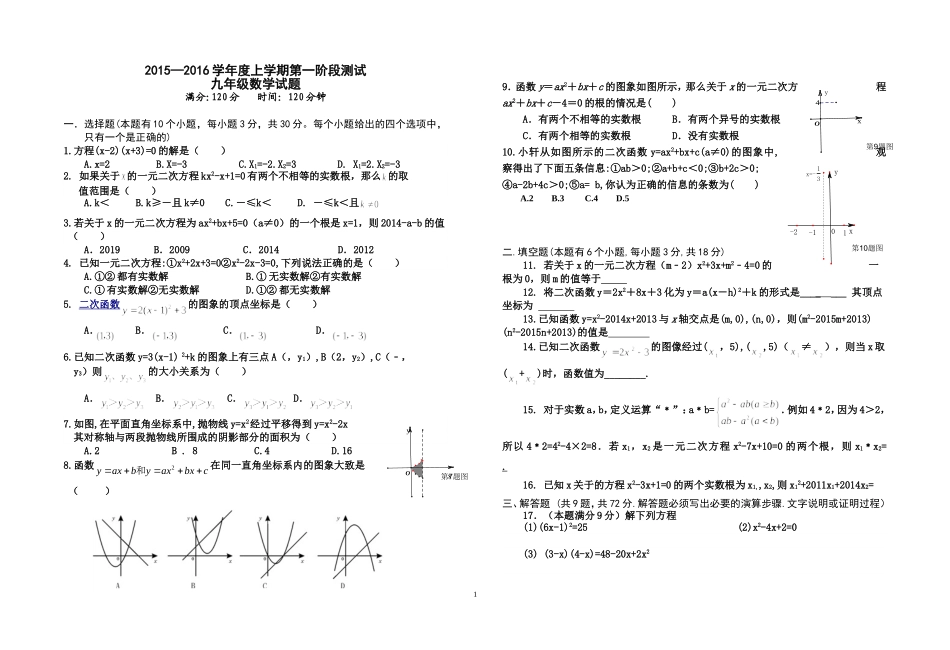 2015—2016学年度上学期第一阶段测试
九年级数学试题
满分:120分 时间: 120分钟
一．选择题(本题有10个小题, 每小题3分, 共30分。每个小题给出的四个选项中,
只有一个是正确的)
1.方程(x-2)(x+3)=0的解是（ ）
A.x=2 B.X=-3 C.X₁=-2.X₂=3 D. X₁=2.X₂=-3
2. 如果关于x的一元二次方程kx²-x+1=0有两个不相等的实数根, 那么k的取
值范围是（ ）
A.k＜ B.k≥－且k≠0 C.－≤k＜ D. －≤k＜且k≠0
3.若关于x的一元二次方程为ax²+bx+5=0（a≠0）的一个根是x=1, 则2014-a-b的值
（ ）
A．2019 B．2009 C．2014 D．2012
4. 已知一元二次方程:①x²+2x+3=0②x²-2x-3=0,下列说法正确的是（ ）
A.①②都有实数解 B.①无实数解②有实数解
C.①有实数解②无实数解 D.①②都无实数解
5. 二次函数y=2(x-1)²+3的图象的顶点坐标是（ ）
A．(1,3) B．(-1,3) C．(1,-3) D．(-1,-3)
6.已知二次函数y=3(x-1)²+k的图象上有三点A（, y₁）,B（2, y₂）,C（﹣,
y₃）则y₁、y₂、y₃的大小关系为（ ）
A． y₁>y₂>y₃ B． y₂>y₁>y₃ C． y₃>y₁>y₂ D． y₃>y₂>y₁
7.如图,在平面直角坐标系中,抛物线y=x²经过平移得到y=x²-2x
其对称轴与两段抛物线所围成的阴影部分的面积为（ ）
A.2 B .8 C.4 D.16
y
x
O
第7题图
8.函数y=ax+b和y=ax²+bx+c在同一直角坐标系内的图象大致是
（ ）
y y y y
0 x 0 x 0 x 0 x
A B C D
9．函数y＝ax²＋bx＋c的图象如图所示,那么关于x的一元二次方程
ax²＋bx＋c－4＝0的根的情况是( )
A．有两个不相等的实数根 B．有两个异号的实数根
C．有两个相等的实数根 D．没有实数根
y
4
O x
第9题图
10.小轩从如图所示的二次函数y=ax²+bx+c(a≠0)的图象中, 观
察得出了下面五条信息:①ab＞0;②a+b+c＜0;③b+2c＞0;
④a-2b+4c＞0;⑤a= b,你认为正确的信息的条数为( )
A.2 B.3 C.4 D.5
x=-1/3 y
-2 -1 0 1 x
第10题图
二.填空题(本题有6个小题,每小题3分,共18分)
11. 若关于x的一元二次方程（m﹣2）x²+3x+m²﹣4=0的一
根为0, 则m的值等于_____
12. 将二次函数y＝2x²＋8x＋3化为y＝a(x－h)²＋k的形式是_______ 其顶点
坐标为 _______
13.已知函数y=x²-2014x+2013与x轴交点是(m,0),(n,0), 则(m²-2015m+2013)
(n²-2015n+2013)的值是_______
14.已知二次函数y=2x²-3的图像经过(x₁, 5),(x₂,5)（x₁≠x₂）, 则当x取
(x₁+x₂)时, 函数值为_______.
15. 对于实数a,b,定义运算“＊”:a＊b={a²-ab(a≥b) ab-a²(a<b).例如4＊2,因为4＞2,
所以4＊2=4²-4×2=8．若x₁, x₂是一元二次方程x²-7x+10=0的两个根, 则x₁＊x₂=
.
16. 已知x关于的方程x²-3x+1=0的两个实数根为x₁,,x₂,则x₁²+2011x₁+2014x₂=
三、解答题 (共9题,共72分.解答题必须写出必要的演算步骤.文字说明或证明过程）
17. （本题满分9分）解下列方程
(1)(6x-1)²=25 (2)x²-4x+2=0
(3) (3-x)(4-x)=48-20x+2x²
1